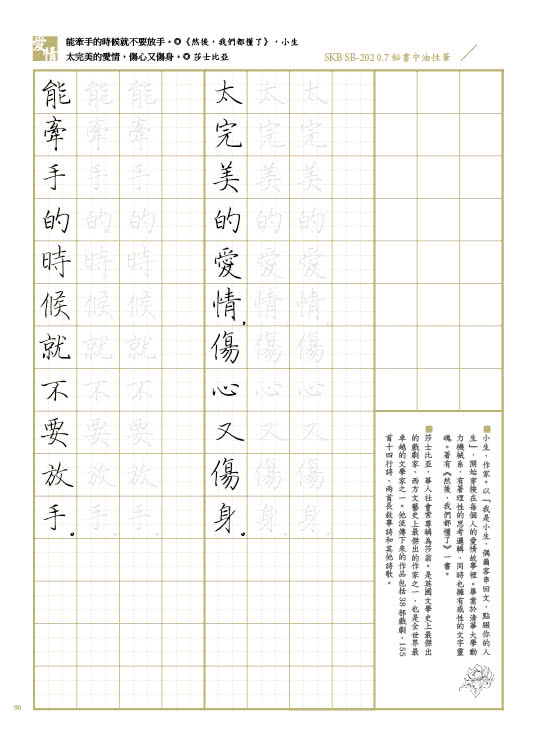 愛情
能牽手的時候就不要放手。◎《然後，我們都懂了》，小生
太完美的愛情，傷心又傷身。◎莎士比亞
SKB SB-202 0.7 秘書中油性筆
能牽手的時候就不要放手。
能牽手的時候就不要放手
能牽手的時候就不要放手
太完美的愛情，傷心又傷身。
太完美的愛情傷心又傷身
太完美的愛情傷心又傷身
■小生，作家。以「我是小生，偶爾客串回文，點綴你的人
生」，開始穿梭在每個人的愛情故事裡。畢業於清華大學動
力機械系，有著理性的思考邏輯，同時也擁有感性的文字靈
魂。著有《然後，我們都懂了》一書。
■莎士比亞，華人社會常尊稱為莎翁。是英國文學史上最傑出
的戲劇家、西方文藝史上最傑出的作家之一，也是全世界最
卓越的文學家之一。他流傳下來的作品包括38部戲劇、155
首十四行詩、兩首長敘事詩和其他詩歌。
90